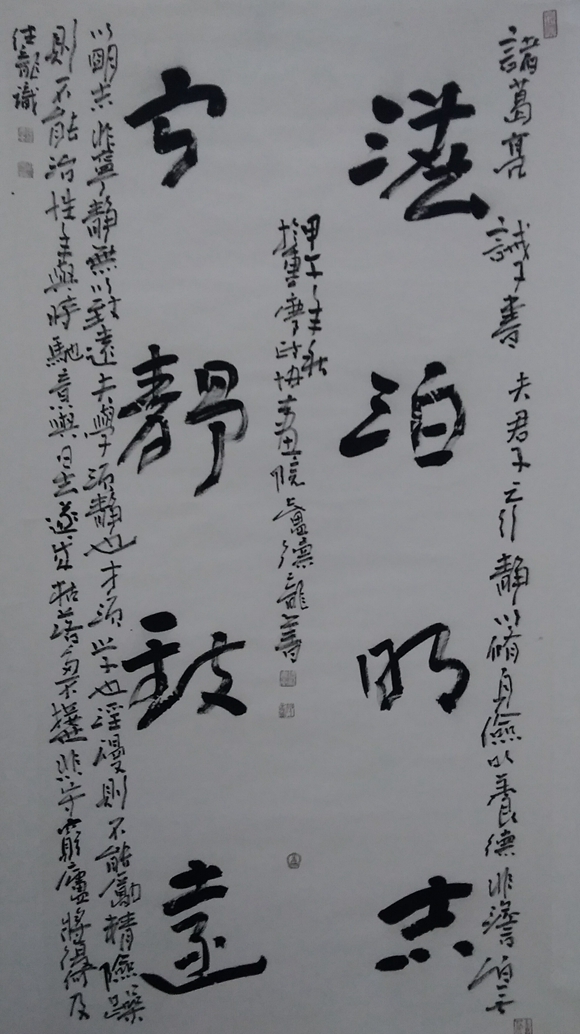 諸葛亮 誡子書 夫君子之行靜以脩身儉以養德非澹泊無
澹泊明志
甲午年秋
政协書画院 龍書
宁靜致遠
以明志非寧靜無以致遠夫學須靜也才須学也淫慢則不能勵精險躁
則不能治性年與時馳意與日去遂成枯落多不接世悲守窮廬將復何及
龍識